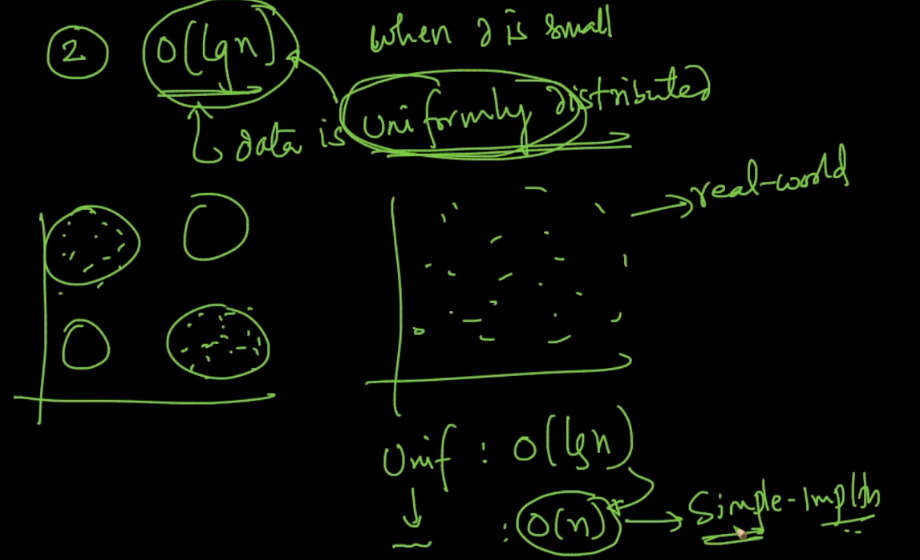 2 O(lgn) when d is small
data is uniformly distributed
real-world
Unif : O(lgn)
: O(n) Simple-Impltn